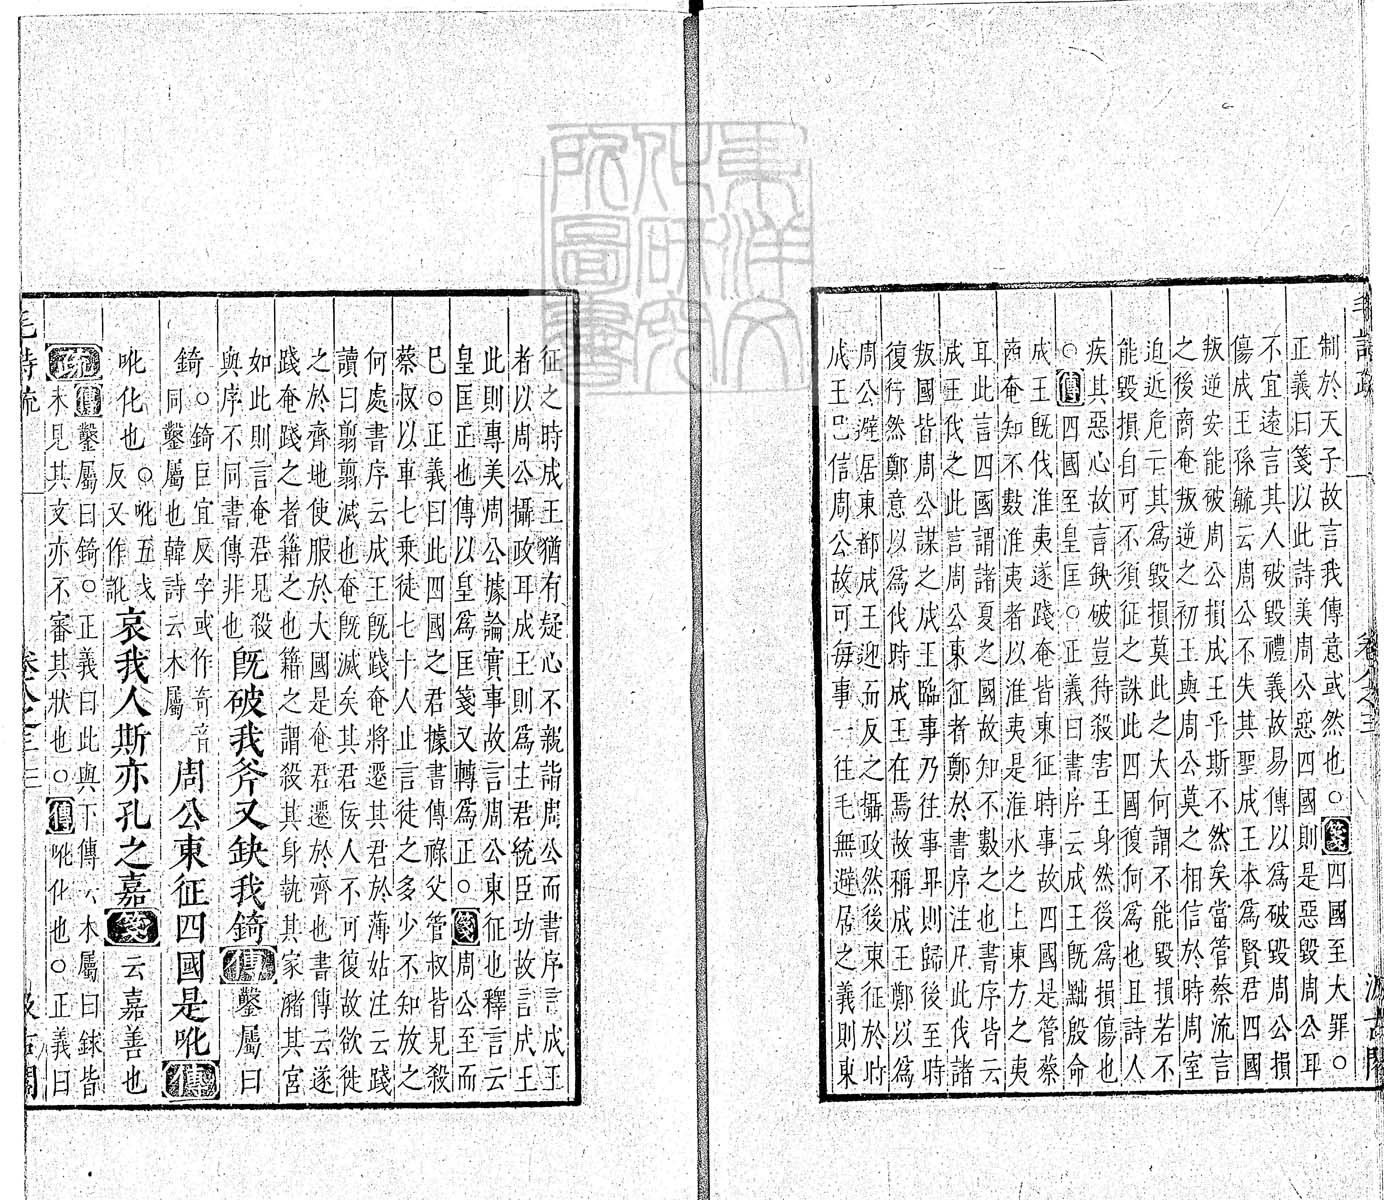 毛詩疏
卷八之三
汲古閣
制於天子故言我傳意或然也○箋四國至大罪○
正義曰箋以此詩美周公惡四國則是惡毀周公耳
不宜遠言其人破毀禮義故易傳以爲破毀周公損
傷成王孫毓云周公不失其聖成王本爲賢君四國
叛逆安能破周公損成王乎斯不然矣當管蔡流言
之後商奄叛逆之初王與周公莫之相信於時周室
迫近危亡其爲毀損莫此之大何謂不能毀損若不
能毀損自可不須征之誅此四國復何爲也且詩人
疾其惡心故言缺破豈待殺害王身然後爲損傷也
○傳四國至皇匡○正義曰書序云成王既黜殷命
成王既伐淮夷遂踐奄皆東征時事故四國是管蔡
商奄知不數淮夷者以淮夷是淮水之上東方之夷
耳此言四國謂諸夏之國故知不數之也書序皆云
成王伐之此言周公東征者鄭於書序注凡此伐諸
叛國皆周公謀之成王臨事乃往事畢則歸後至時
復行然鄭意以爲伐時成王在焉故稱成王鄭以爲
周公避居東都成王迎而反之攝政然後東征於時
成王已信周公故可每事一往毛無避居之義則東
征之時成王猶有疑心不親詣周公而書序言成王
者以周公攝政耳成王則爲主君統臣功故言成王
此則專美周公據論實事故言周公東征也釋言云
皇匡正也傳以皇爲匡箋又轉爲正○箋周公至而
已○正義曰此四國之君據書傳祿父管叔皆見殺
蔡叔以車七乘徒七十人止言徒之多少不知放之
何處書序云成王既踐奄將遷其君於薄姑注云踐
讀曰翦翦滅也奄既滅矣其君佞人不可復故欲徙
之於齊地使服於大國是奄君遷於齊也書傳云遂
踐奄踐之者籍之也籍之謂殺其身執其家瀦其宮
如此則言奄君見殺
與序不同書傳非也
既破我斧又缺我錡傳鑿屬曰
錡○錡巨宜反字或作奇音
同鑿屬也韓詩云木屬
周公東征四國是吪傳
吪化也○吪五戈
反又作訛
哀我人斯亦孔之嘉箋云嘉善也
疏傳鑿屬曰錡○正義曰此與下傳云木屬曰銶皆
未見其文亦不審其狀也○傳吪化也○正義曰
毛詩疏
卷八之三
三
汲古閣
東洋文化研究所圖書